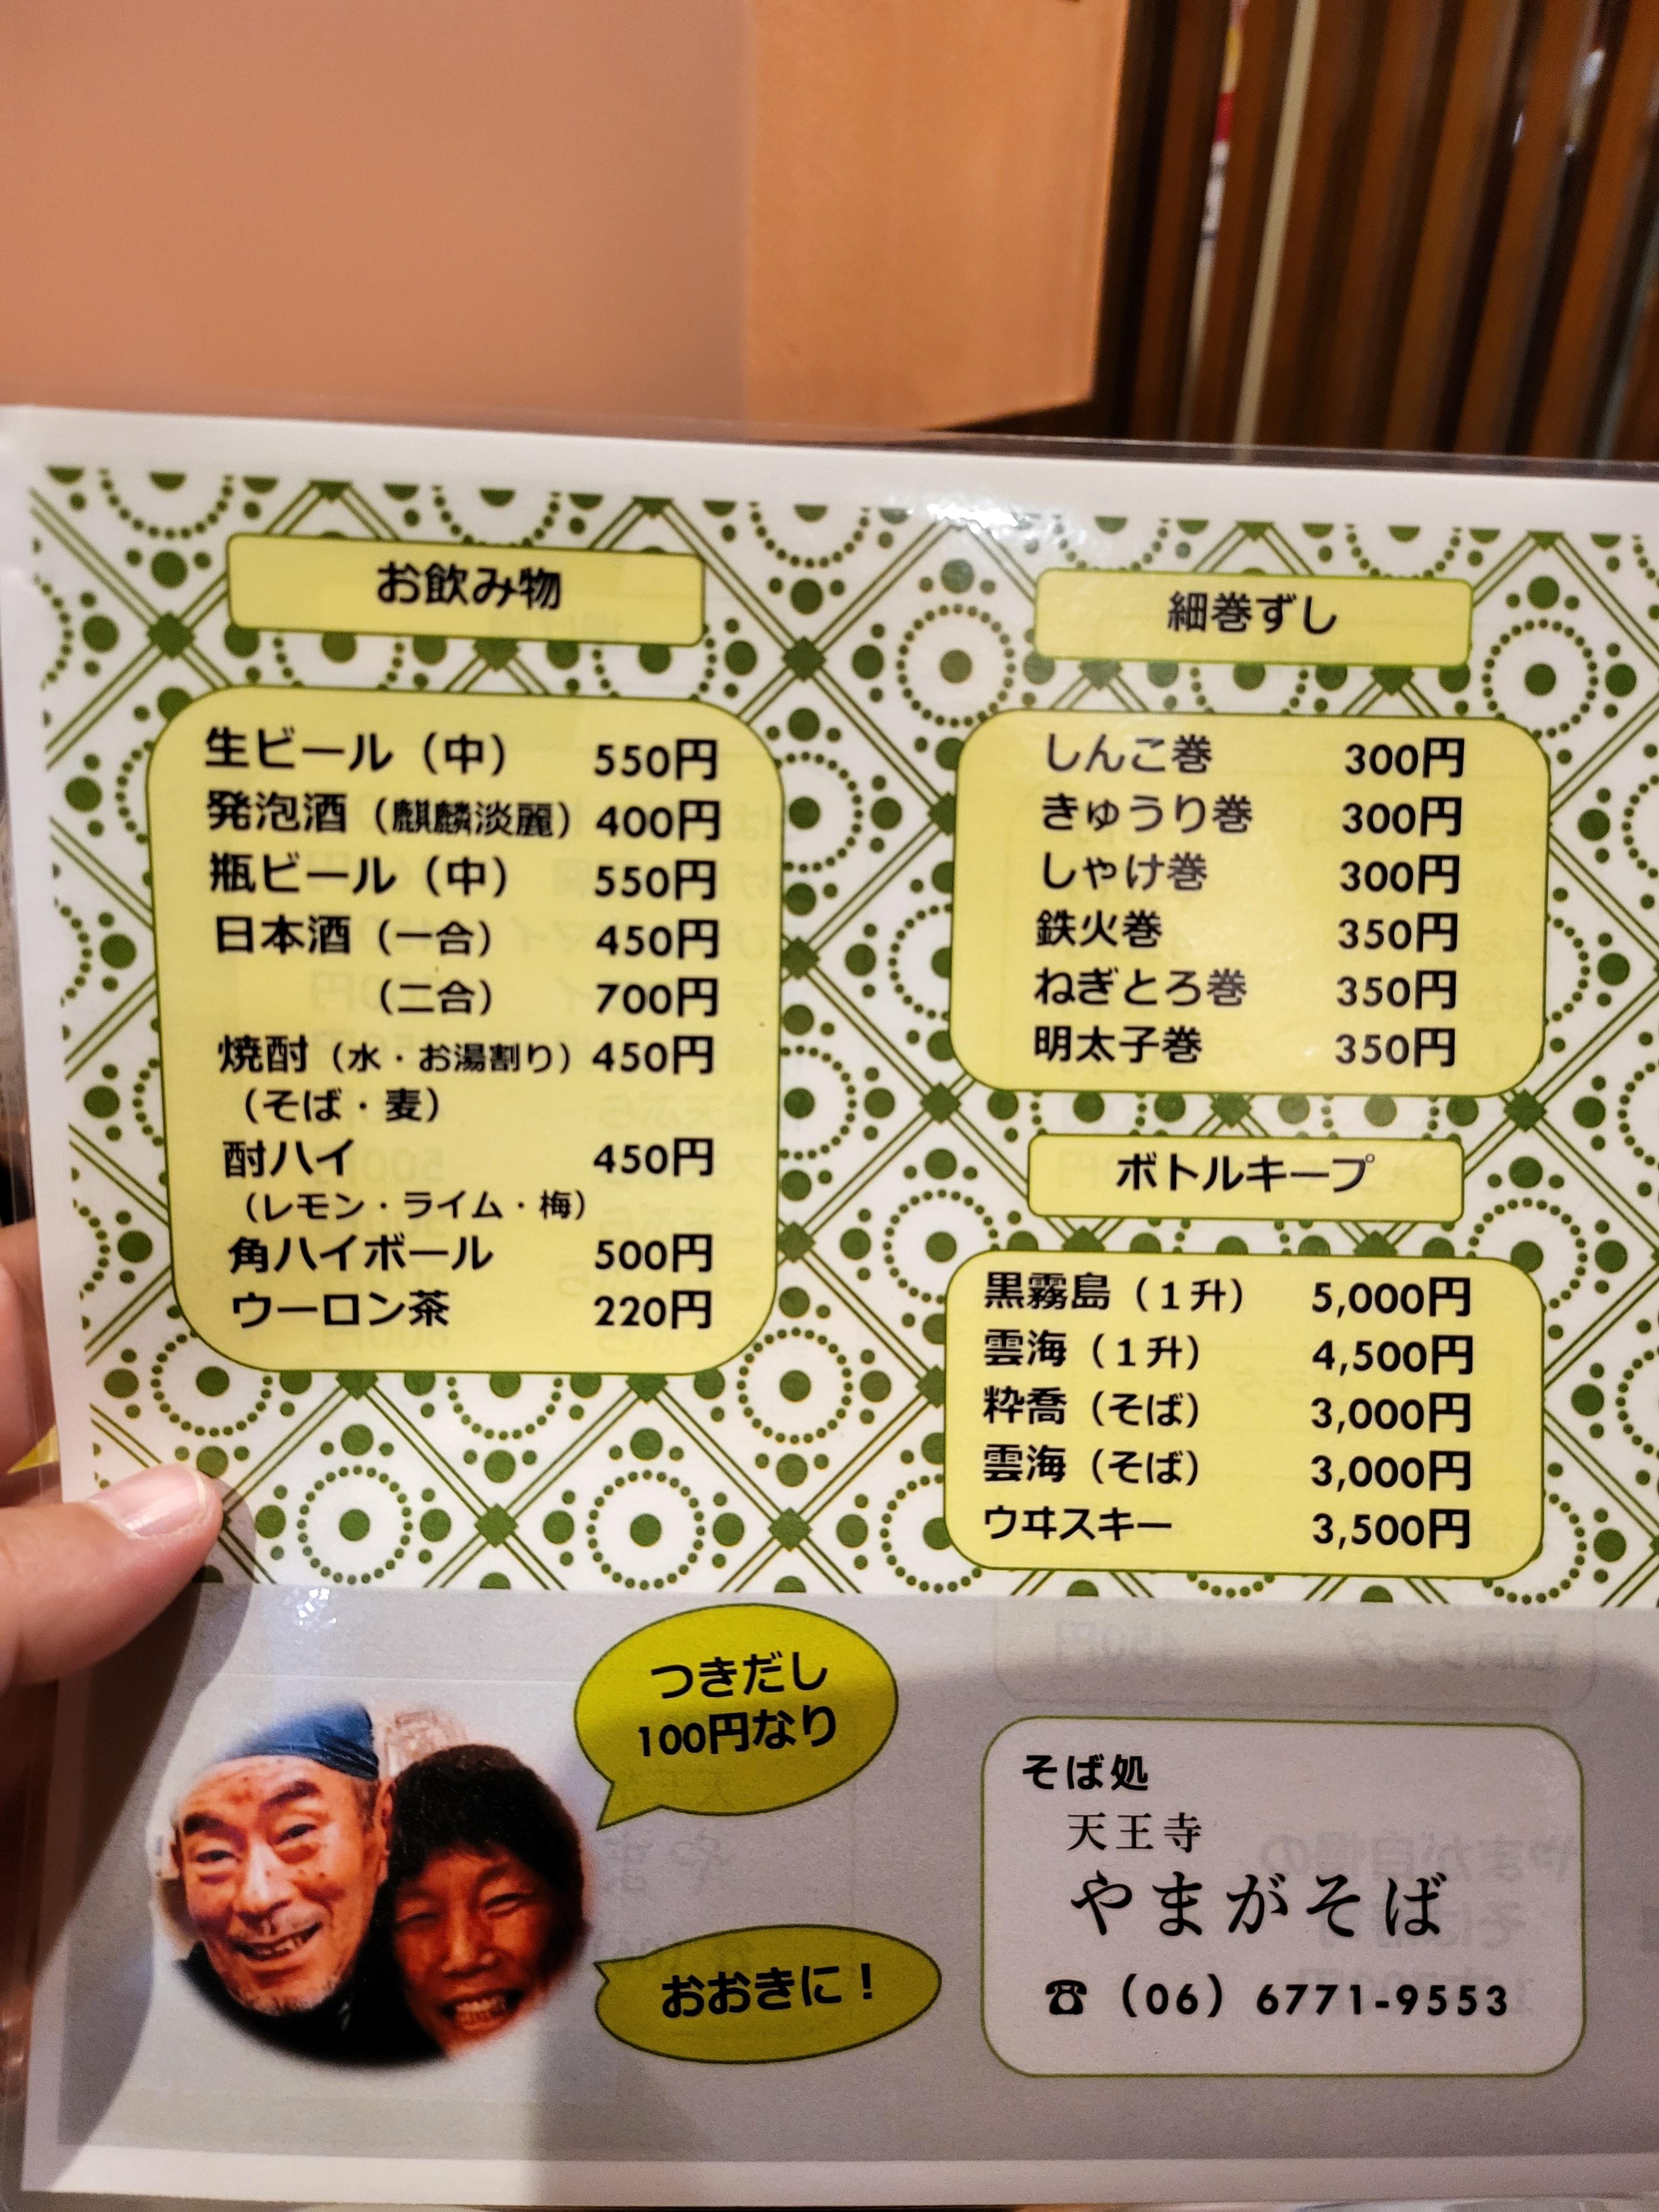 お飲み物
生ビール（中） 550円
発泡酒（麒麟淡麗）400円
瓶ビール（中） 550円
日本酒（一合） 450円
（二合） 700円
焼酎（水・お湯割り）450円
（そば・麦）
酎ハイ 450円
（レモン・ライム・梅）
角ハイボール 500円
ウーロン茶 220円
細巻ずし
しんこ巻 300円
きゅうり巻 300円
しゃけ巻 300円
鉄火巻 350円
ねぎとろ巻 350円
明太子巻 350円
ボトルキープ
黒霧島（１升） 5,000円
雲海（１升） 4,500円
粋喬（そば） 3,000円
雲海（そば） 3,000円
ウヰスキー 3,500円
つきだし
100円なり
おおきに！
そば処
天王寺
やまがそば
☎（06）6771-9553